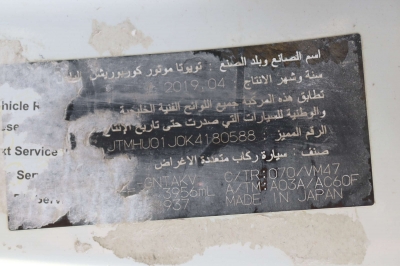 اسم الصانع وبلد الصنع : تويوتا موتور كوربوريشن
سنة وشهر الانتاج : 2019.04
تطابق هذه المركبة جميع اللوائح الفنية
والوطنية للسيارات التي صدرت حتى تاريخ الإنتاج
الرقم المميز : JTMHU01J0K4180588
صنف : سيارة ركاب متعددة الأغراض
GNTAKV C/TR:070/VM47
3956mL A/TM:A03A/AC60F
937 MADE IN JAPAN
Service